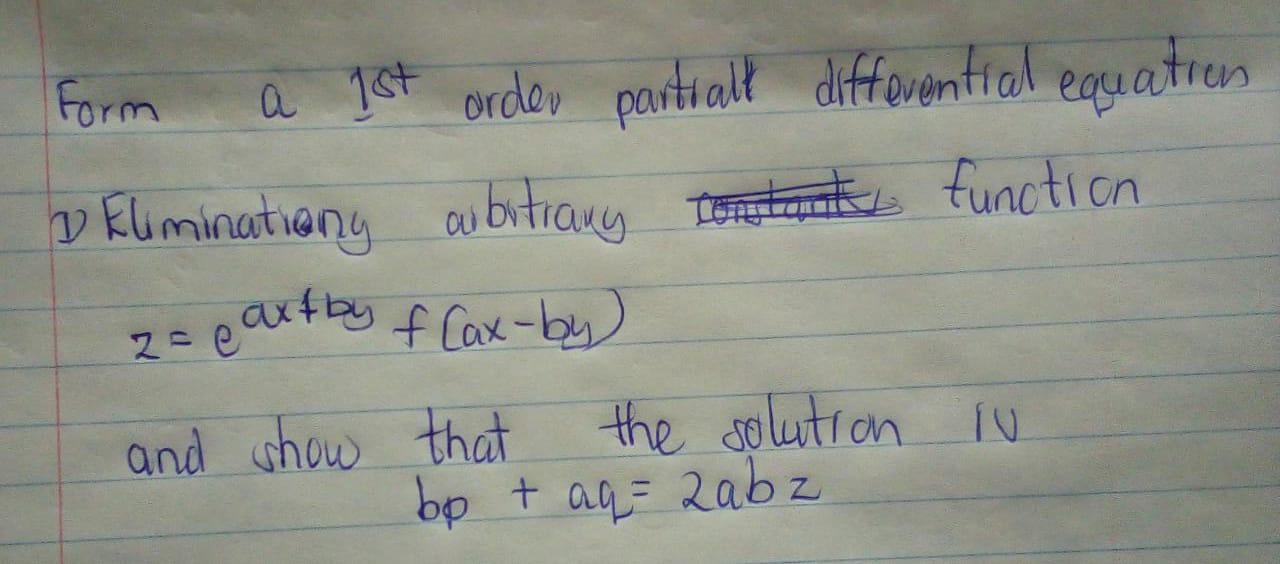 Form a 1st order partialt differential equation
1) Eliminationg arbitrary constants function
z = e^{ax+by} f(ax-by)
and show that the solution is
bp + aq = 2abz